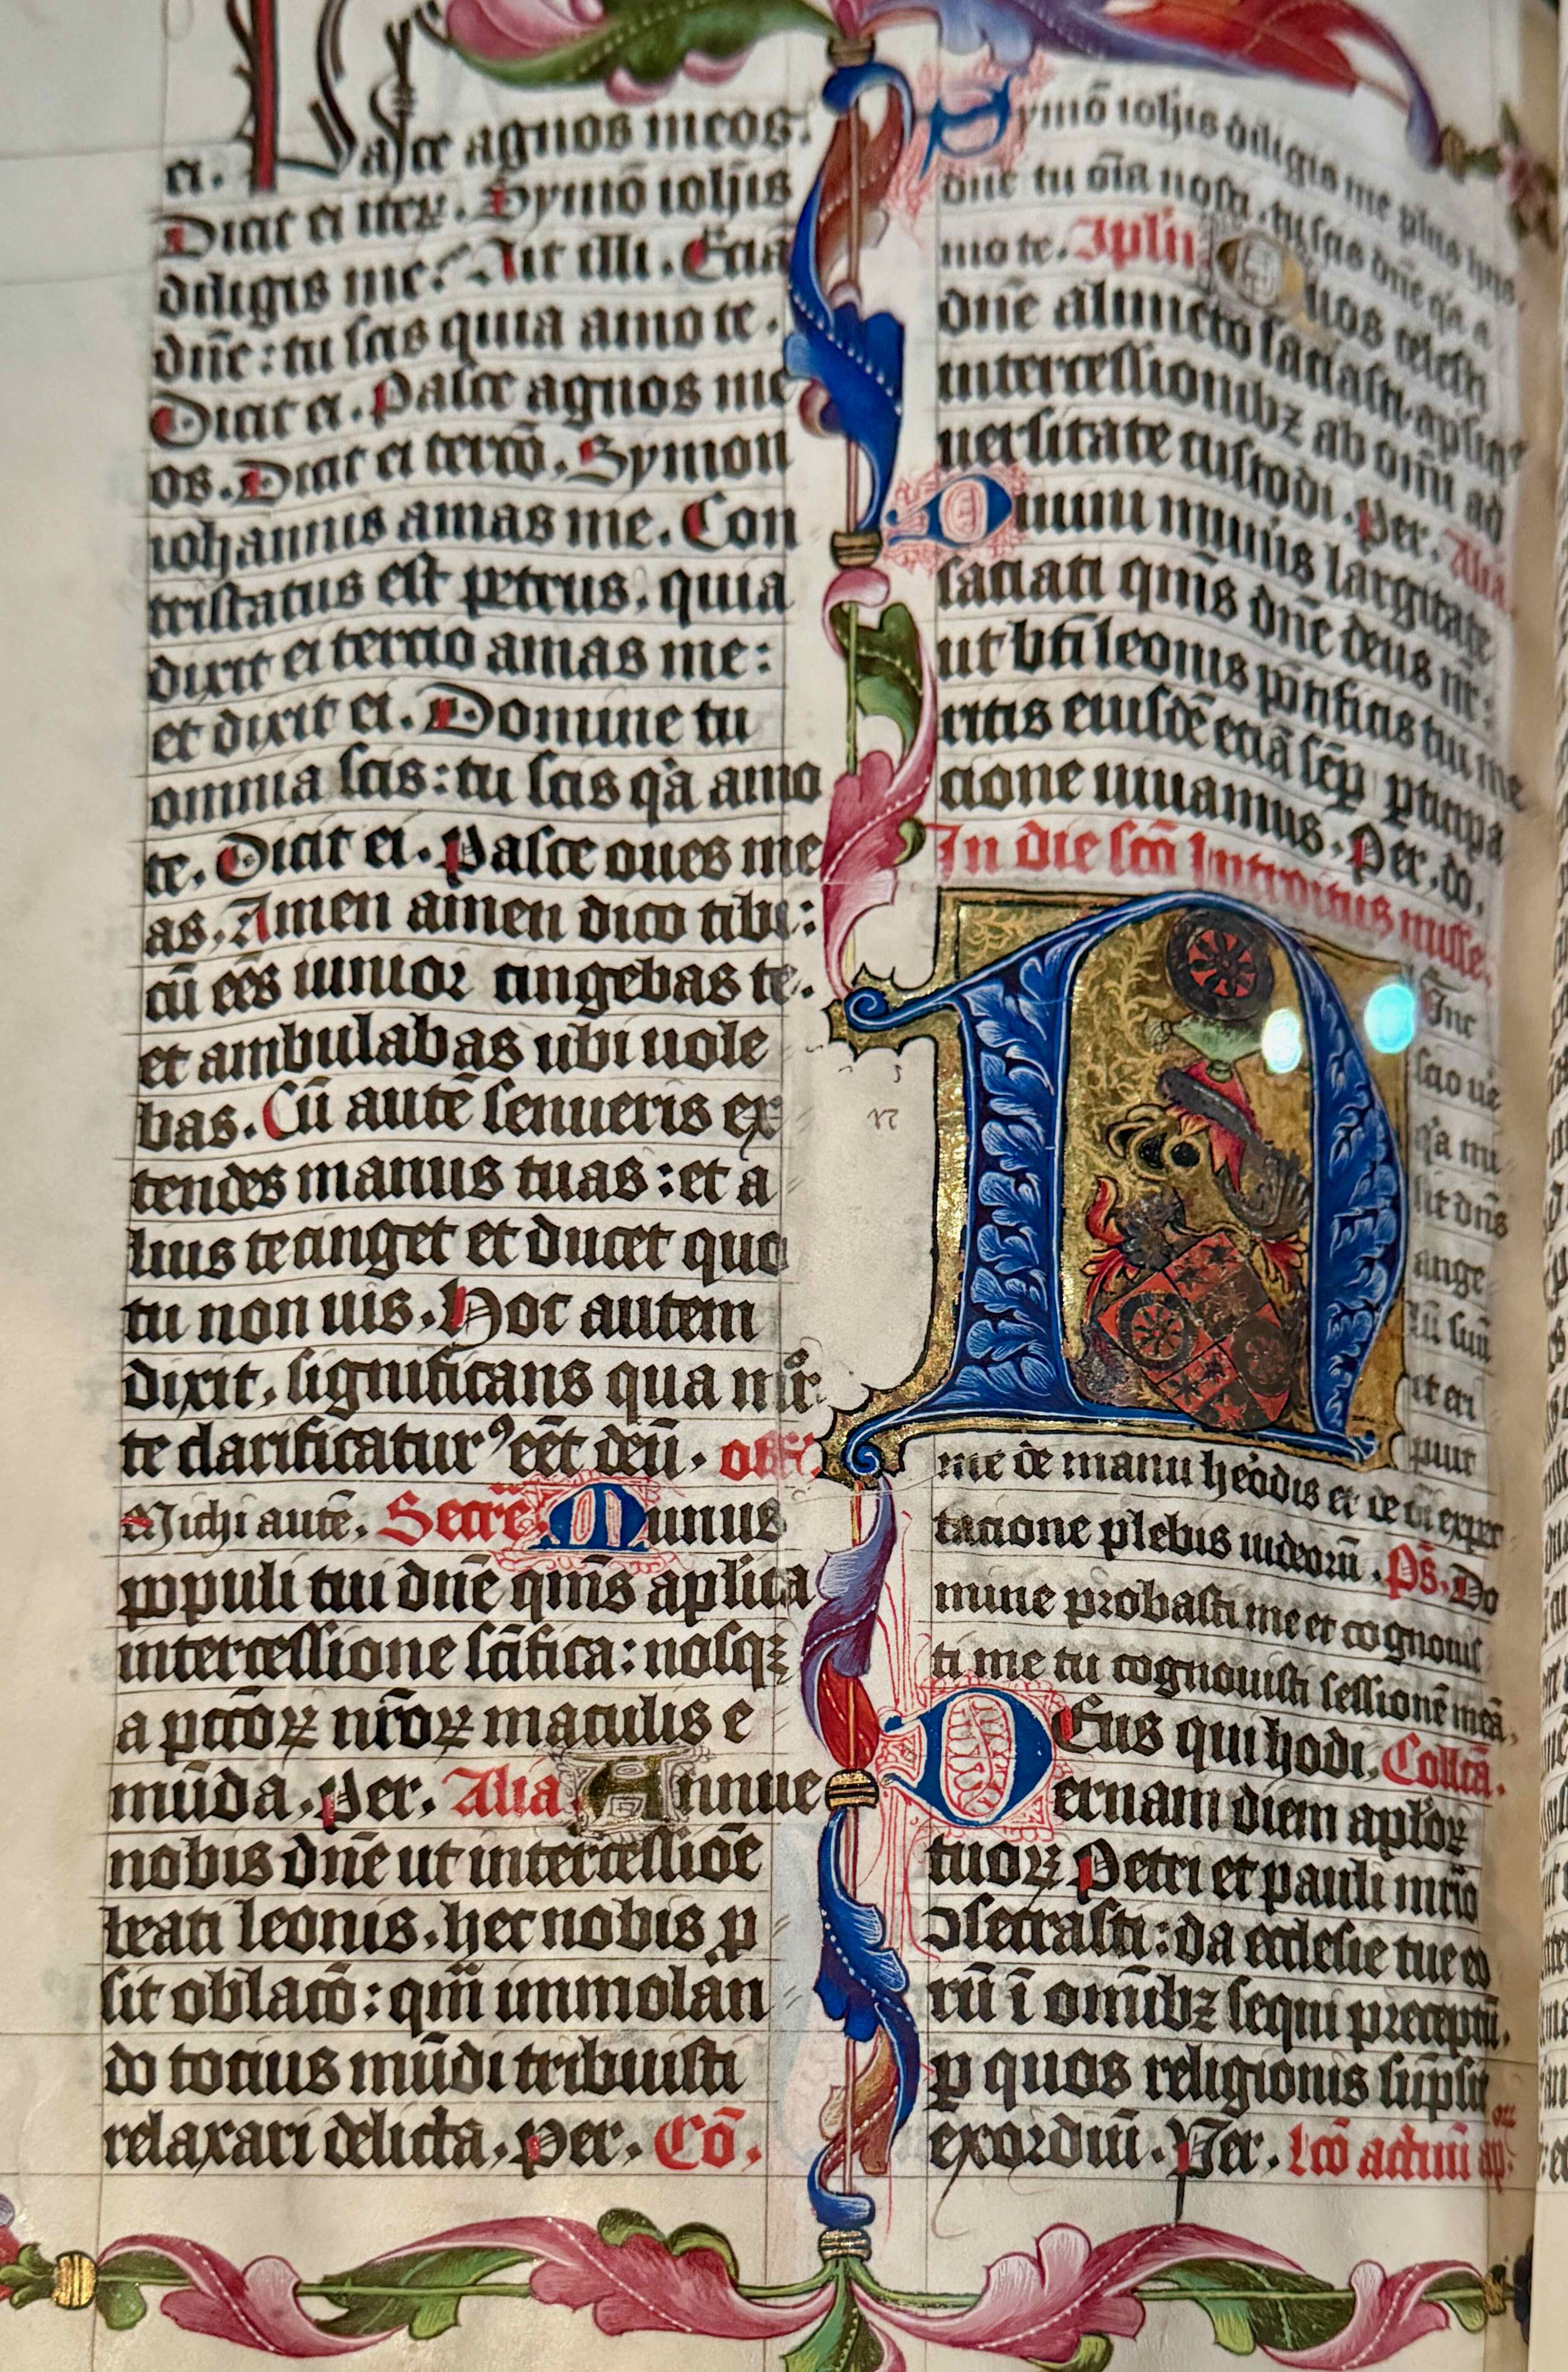 ei. Pasce agnos meos.
Dicit ei iterꝝ. Symō ioh̄is
diligis me? Ait illi. Eciā
dn̄e: tu scis quia amo te.
Dicit ei. Pasce agnos me
os. Dicit ei terciō. Symon
iohannis amas me. Con
tristatus est petrus, quia
dixit ei tercio amas me:
et dixit ei. Domine tu
omnia scis: tu scis qͣa amo
te. Dicit ei. Pasce oues me
as. Amen amen dico tibi:
cū eēs iunior cingebas te.
et ambulabas ubi uole
bas. Cū autē senueris ex
tendes manus tuas: et a
lius te cinget et ducet quo
tu non uis. Hoc autem
dixit, significans qua mor
te clarificaturꝰ eēt deū. off̄.
Michi autē. Secrē. Munus
populi tui dn̄e qm̄s apl̄ica
intercessione sc̄ifica: nosqꝫ
a pctōꝝ nr̄oꝝ maculis e
mūda. Per. Alia. Annue
nobis dn̄e ut intercessiōe
beati leonis, hec nobis ꝓ
sit oblacō: qm̄ immolan
do tocius mūdi tribuisti
relaxari delicta. Per. Cō.
Symō ioh̄is diligis me plus hijs.
dn̄e tu oīa nosti. tu scis dn̄e qͣa a
mo te. Cplīi Quos celesti
dn̄e alimēto saciasti. aplicꝭ
intercessionibꝫ ab omi ad
uersitate custodi. Per. Alia.
Diuini mūnis largitate
saciati qm̄s dn̄e deus nr̄:
ut bt̄i leonis pōtificis tui me
ritis eiusdē eciā sēꝑ ꝑticipa
cione uiuamus. Per. dō.
In die sc̄ō Introitus misse.
Nūnc
scio ue
qͣa mi
sit dn̄s
ange
lū suū
et eri
puit
me de manu heͦodis et de oī expec
tacione plebis iudeorū. Ps̄. Do
mine probasti me et cognouis
ti me tu cognouisti sessionē meā.
Deus qui hodi. Collcā.
ernam diem apl̄oꝝ
tuoꝝ Petri et pauli mr̄io
ↄsecrasti: da ecclesie tue eo
rū ī omībꝫ sequi preceptū.
ꝑ quos religionis sūpsit
exordiū. Per. Lcō actuū ap: